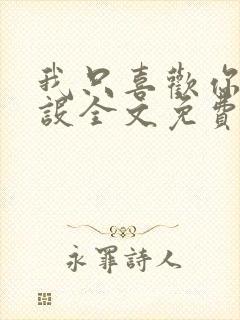 我只喜歡你
設全文免費
永罪詩人